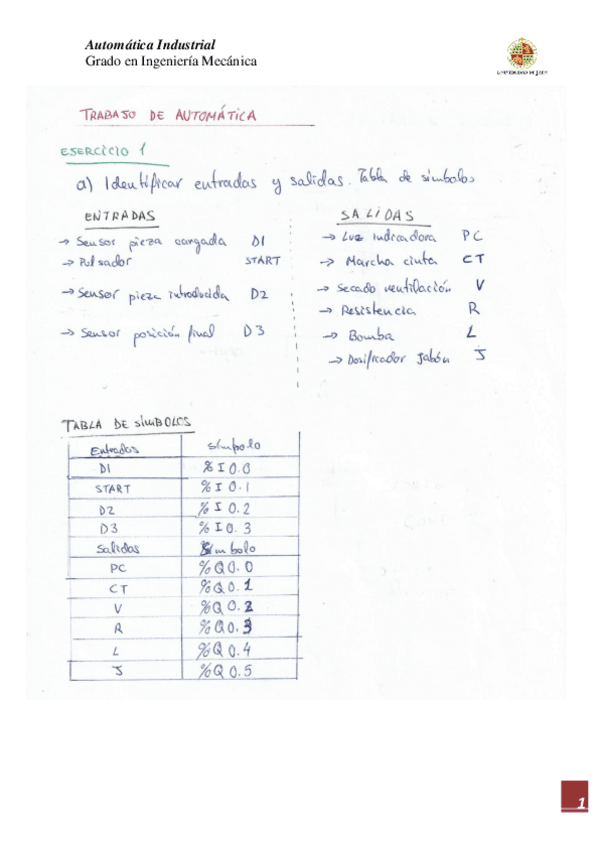 Automática Industrial
Grado en Ingeniería Mecánica
UNIVERSIDAD DE JAÉN
TRABAJO DE AUTOMÁTICA
EJERCICIO 1
a) Identificar entradas y salidas. Tabla de símbolos
ENTRADAS
→ Sensor pieza cargada D1
→ Pulsador START
→ Sensor pieza introducida D2
→ Sensor posición final D3
SALIDAS
→ Luz indicadora PC
→ Marcha cinta CT
→ Secado ventilación V
→ Resistencia R
→ Bomba L
→ Dosificador Jabón J
TABLA DE SÍMBOLOS
Entradas símbolo
D1 % I 0.0
START % I 0.1
D2 % I 0.2
D3 % I 0.3
Salidas Símbolo
PC %Q0.0
CT %Q0.1
V %Q0.2
R %Q0.3
L %Q0.4
J %Q0.5
1